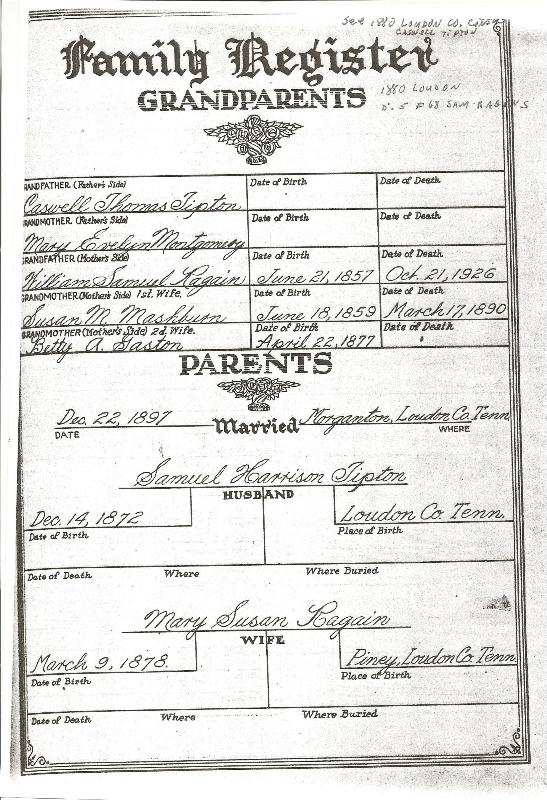 See 1880 Loudon Co. Census
Caswell Tipton
Family Register
1880 Loudon
GRANDPARENTS
D. 5 #68 Sam Ragains
GRANDFATHER (Father's Side) Date of Birth Date of Death
Caswell Thomas Tipton
GRANDMOTHER (Father's Side) Date of Birth Date of Death
Mary Evelyn Montgomery
GRANDFATHER (Mother's Side) Date of Birth Date of Death
William Samuel Ragain June 21, 1857 Oct. 21, 1926
GRANDMOTHER (Mother's Side) 1st. Wife. Date of Birth Date of Death
Susan M. Mashburn June 18, 1859 March 17, 1890
GRANDMOTHER (Mother's Side) 2d. Wife. Date of Birth Date of Death
Betty A. Gaston April 22, 1877
PARENTS
Dec. 22, 1897 Married Morganton, Loudon Co. Tenn
DATE WHERE
Samuel Harrison Tipton
HUSBAND
Dec. 14, 1872 Loudon Co. Tenn.
Date of Birth Place of Birth
Date of Death Where Where Buried
Mary Susan Ragain
WIFE
March 9, 1878. Piney, Loudon Co. Tenn.
Date of Birth Place of Birth
Date of Death Where Where Buried